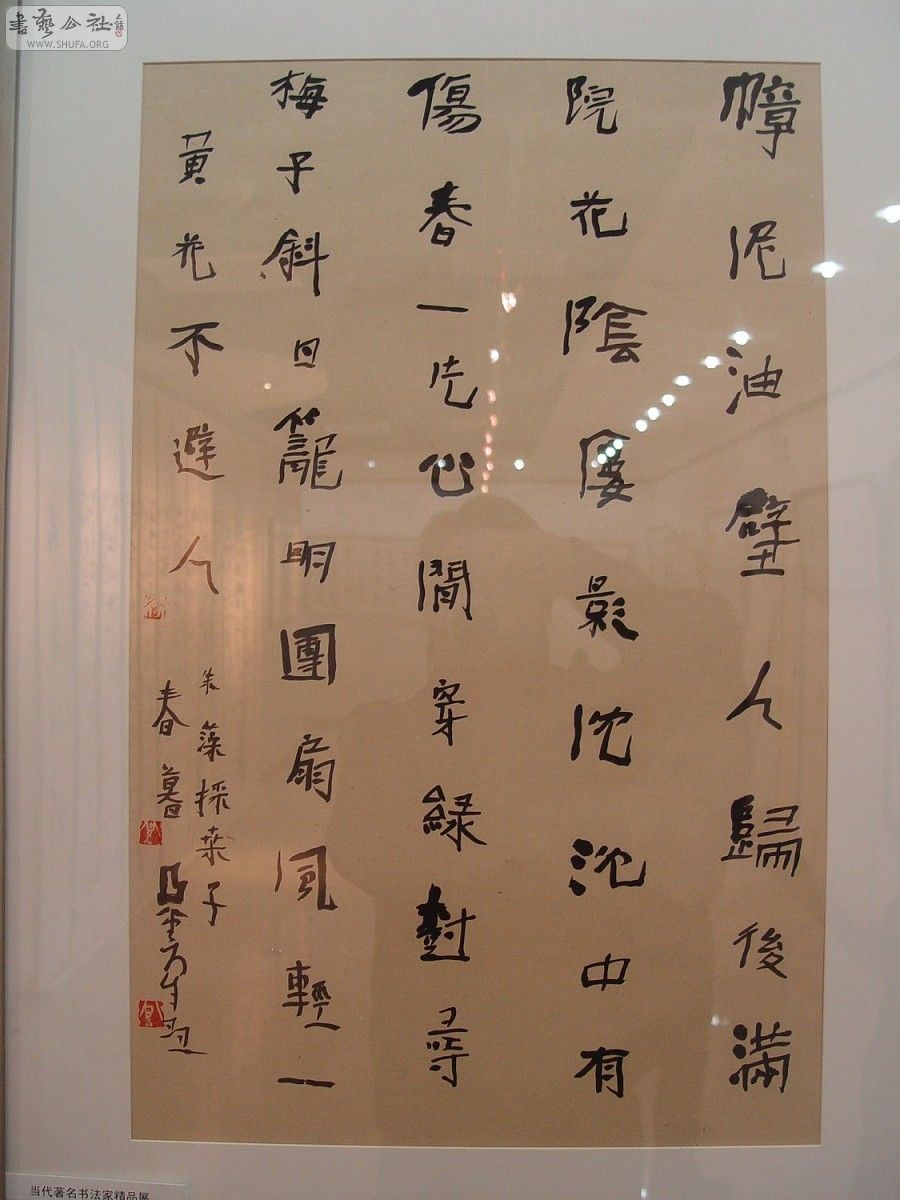 書藝公社
WWW.SHUFA.ORG
幛泥油壁人歸後滿
院花陰廔影沈沈中有
傷春一片心間穿綠尌尋
梅子斜日籠明團扇風輕一
黃花不避人
朱藻採桑子
春暮
当代著名书法家精品展